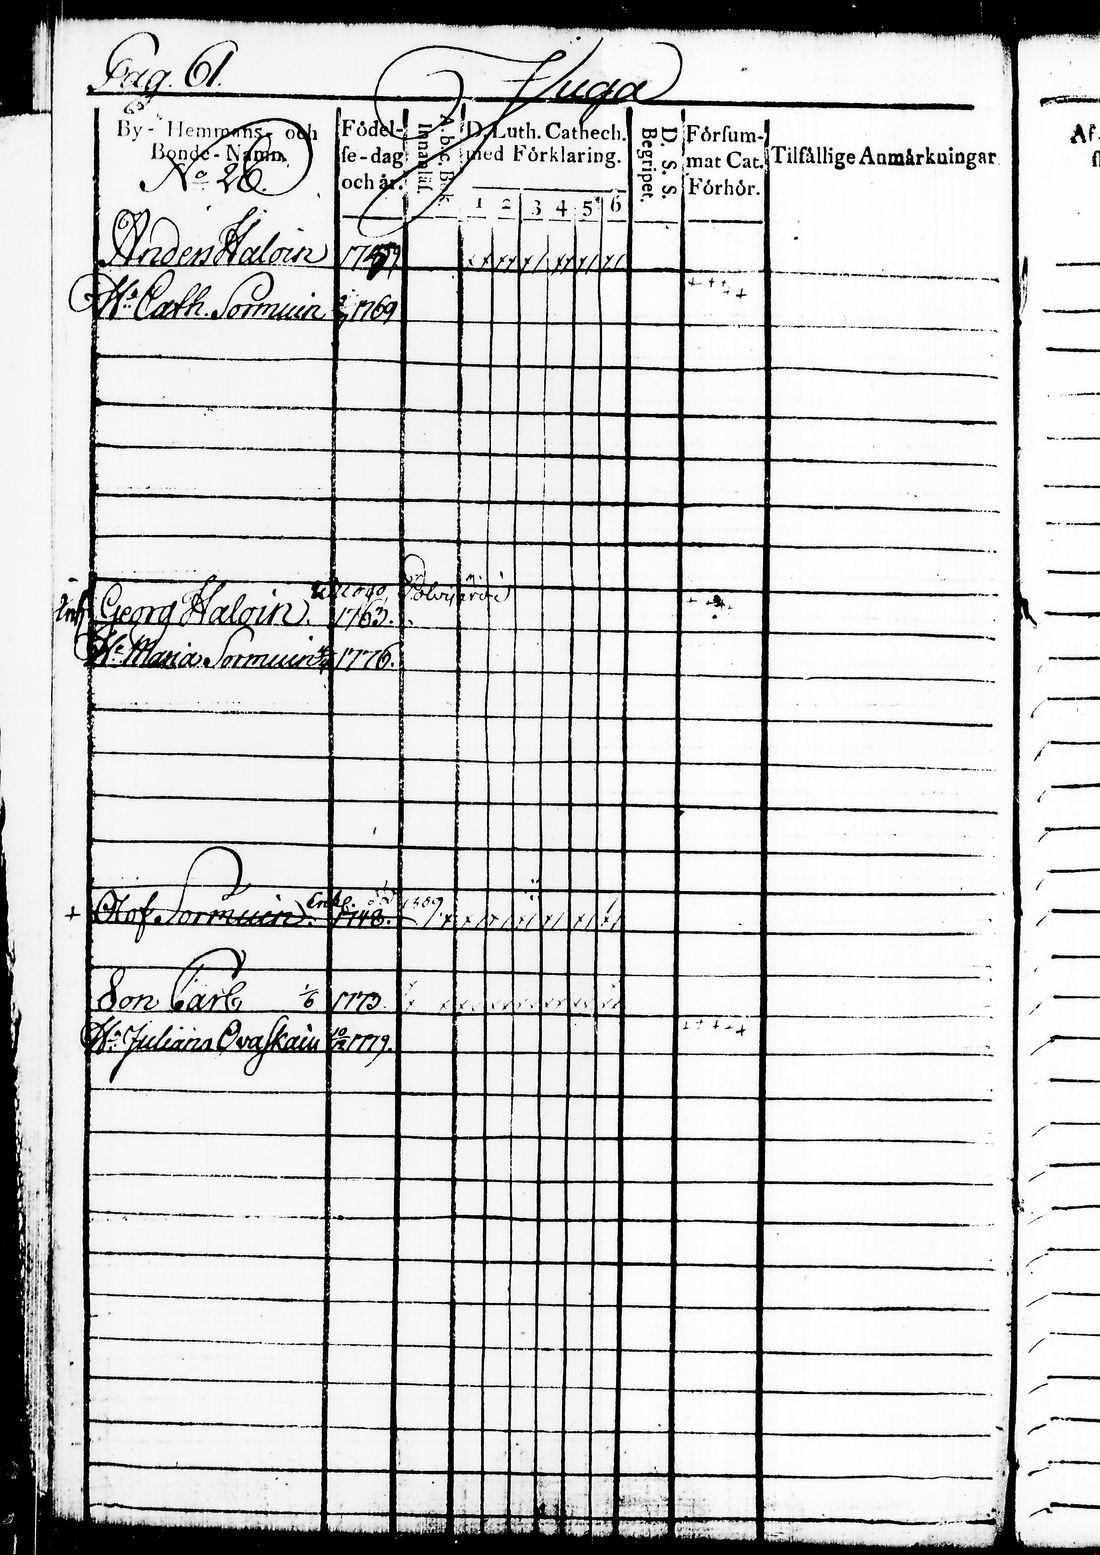 Pag. 61.
Juga
By- Hemmans- och
Bonde-Namn.
No 26.
Födel-
se-dag
och år.
A. b. c. Bok
Innanläs.
D. Luth. Cathech.
med Förklaring.
1 2 3 4 5 6
D. S. S.
Begripet.
Försum-
mat Cat.
Förhör.
Tilfällige Anmärkningar
Anders Haloin
Hu Cath. Sormuin 1769
Polvijärvi
Georg Haloin. 1763.
Hu Maria Sormuin 1776.
Enkl. 1809
+ Olof Sormuin. 1748.
Son Carl 1/6 1773.
Hu Juliana Ovaskain 10/12 1779.